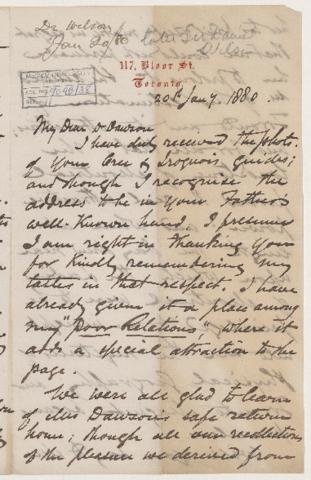 Dr Wilson
Jan 20/80 Later Sir Daniel
Wilson
117, Bloor St.
Toronto
20th Jany. 1880.
My Dear Dr Dawson
I have duly received the photo.
of your Cree & Iroquois guides;
and though I recognise the
address to be in your Father's
well-known hand, I presume
I am right in thanking you
for kindly remembering my
tastes in that respect. I have
already given it a place among
my "Poor Relations" where it
adds a special attraction to the
page.
We were all glad to learn
of Mrs Dawson's safe return
home; though all our recollections
of the pleasure we derived from